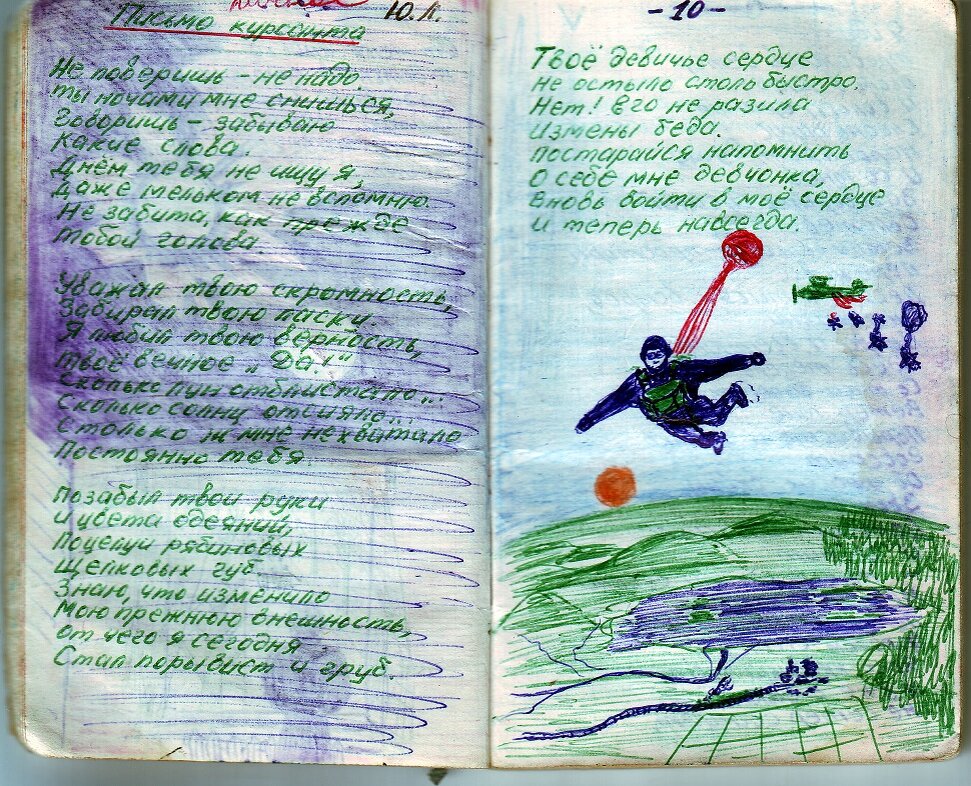 Письмо курсанта
Ю.Л.
Не поверишь - не надо.
ты ночами мне снишься,
Говоришь - забываю
Какие слова.
Днём тебя не ищу я,
Даже мельком не вспомню.
Не забита, как прежде
тобой голова
Уважал твою скромность,
Забирал твою ласки.
Я любил твою верность,
твоё вечное „Да!"
Сколько лун отблистало...
Сколько солнц отсияло...
Столько ж мне не хватало
Постоянно тебя.
Позабыл твои руки
и цвета одеяний,
Поцелуи рябиновых
Щелковых губ.
Знаю, что изменило
Мою прежнюю внешность,
от чего я сегодня
Стал порывист и груб.
-10-
Твоё девичье сердце
Не остыло столь быстро.
Нет! Его не разила
Измены беда.
постарайся напомнить
О себе мне девчонка,
Вновь войти в моё сердце
и теперь навсегда.